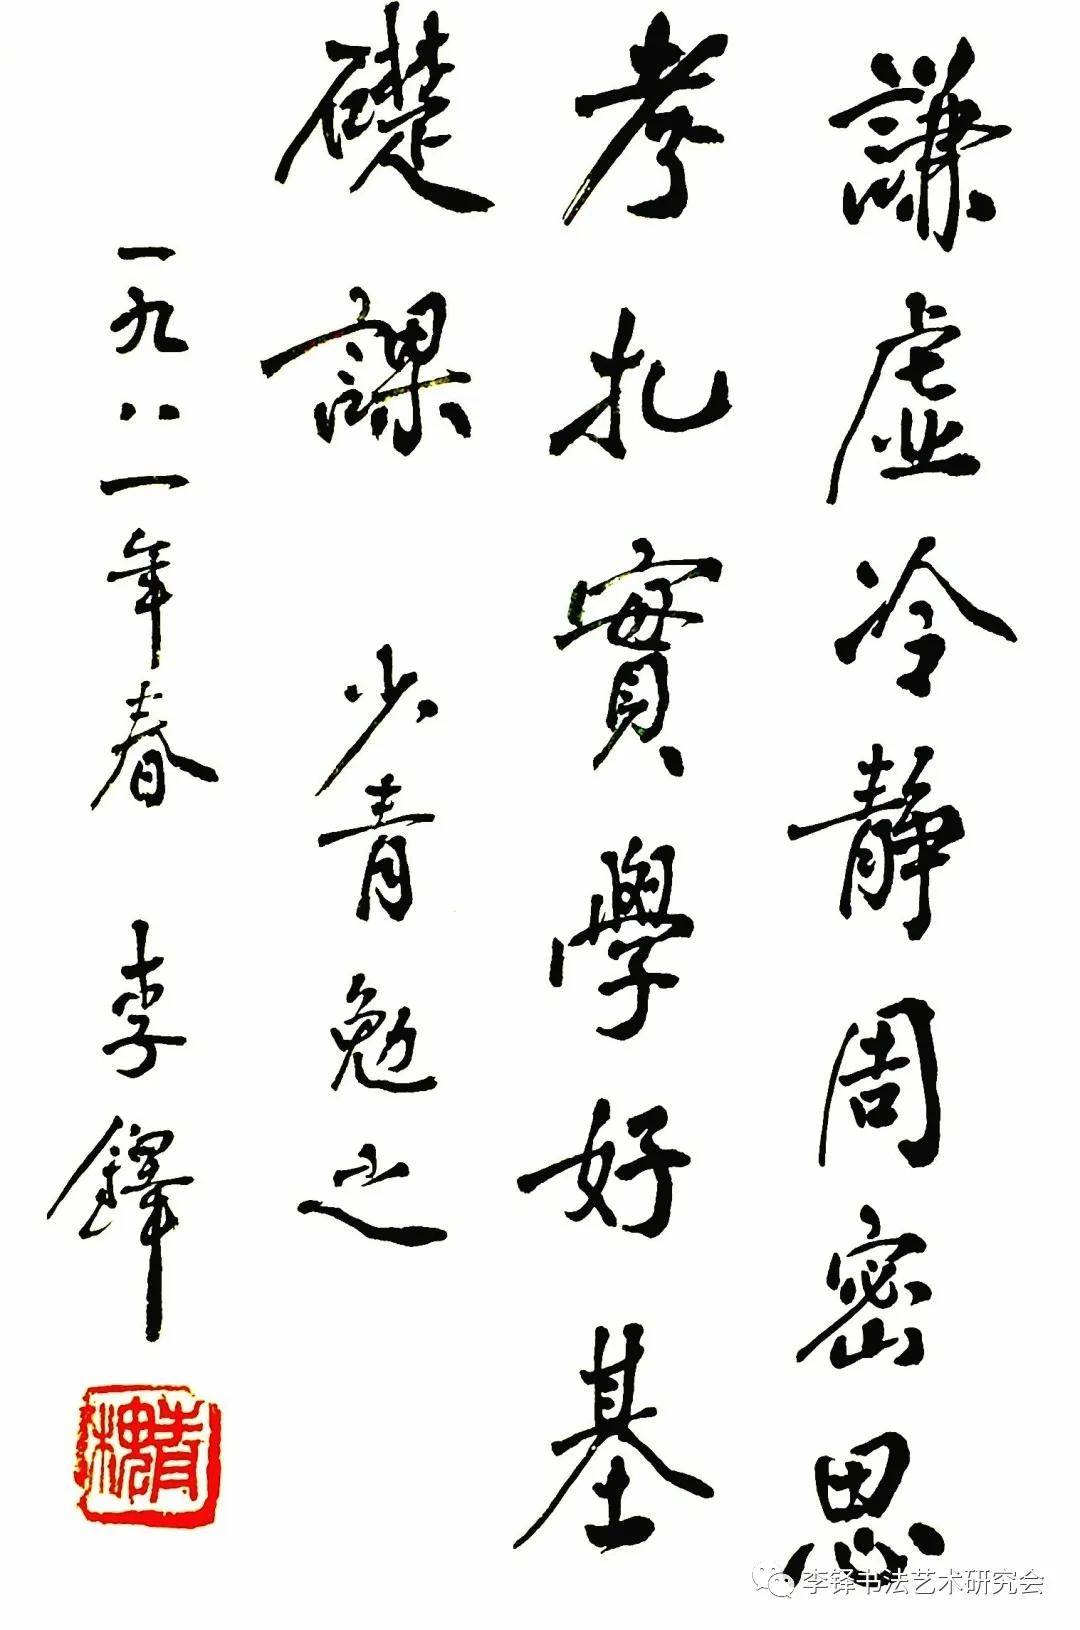 謙虛冷靜周密思
考扎實學好基
礎課 少青勉之
一九八一年春 李鐸
青槐
李铎书法艺术研究会